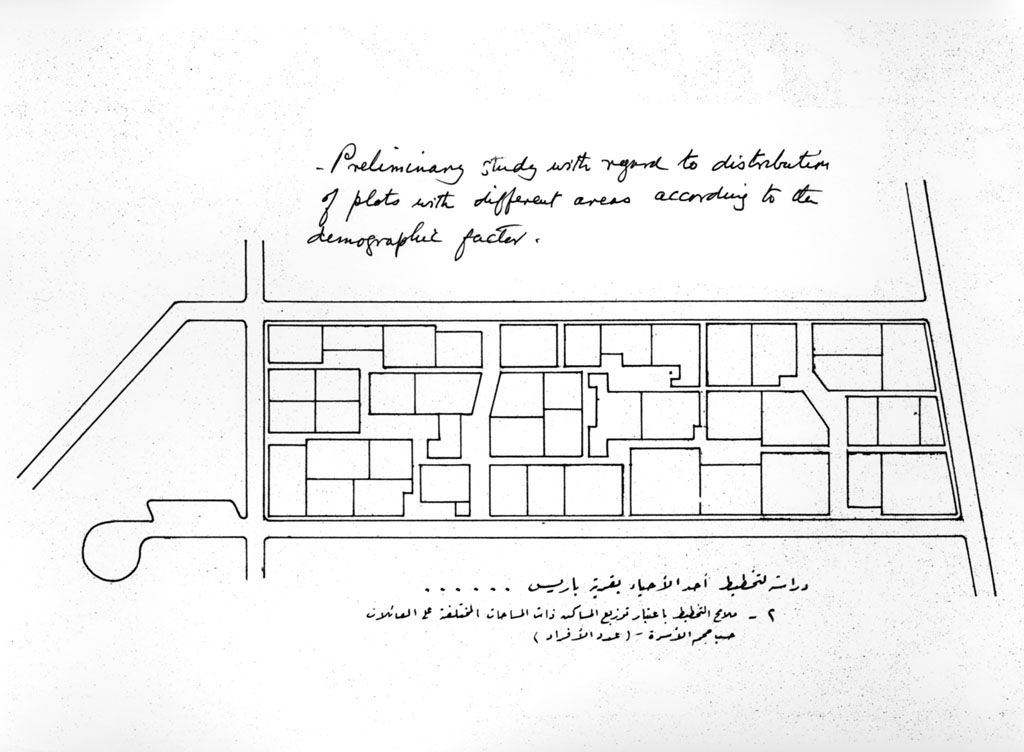 - Preliminary study with regard to distribution
of plots with different areas according to the
demographic factor.
دراسة لتخطيط أحد الأحياء بقرية باريس . . . . . .
٢ - ملامح التخطيط باعتبار توزيع المساكن ذات المساحات المختلفة على العائلات
حسب حجم الأسرة - (عدد الأفراد)